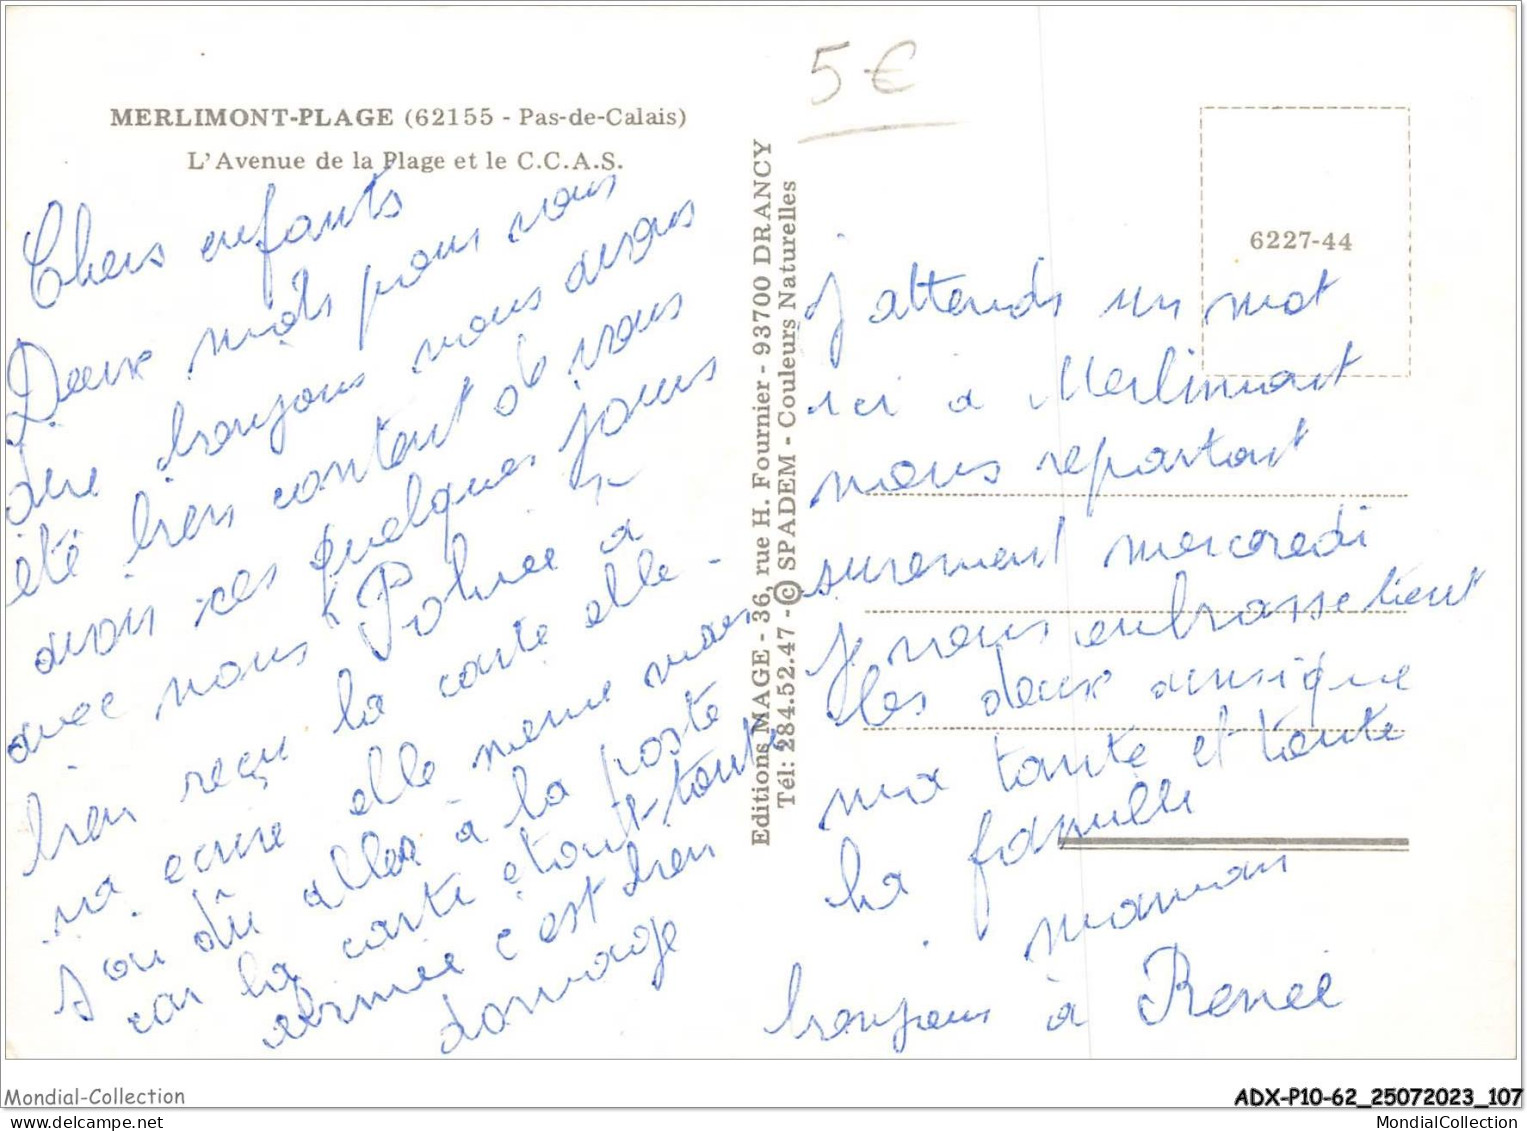 5€
MERLIMONT-PLAGE (62155 - Pas-de-Calais)
L'Avenue de la Plage et le C.C.A.S.
Chers enfants
Deux mots pour vous
dire bonjour nous avons
été bien content de vous
avoir ces quelques jours
avec nous a
bien reçu la carte elle
va ecrire elle meme mais
j'ai dû aller à la poste
car la carte étant toute
abimée c'est bien
domage
Editions MAGE - 36, rue H. Fournier - 93700 DRANCY
Tél: 284.52.47 - © SPADEM - Couleurs Naturelles
6227-44
j attends un mot
ici a Merlimont
nous repartont
surement mercredi
je vous embrasse tient
les deux ainsi que
ma tante et toute
la famille
maman
bonjour à Renée
Mondial-Collection
ADX-P10-62_25072023_107
mondial-collection.delcampe.net
MondialCollection